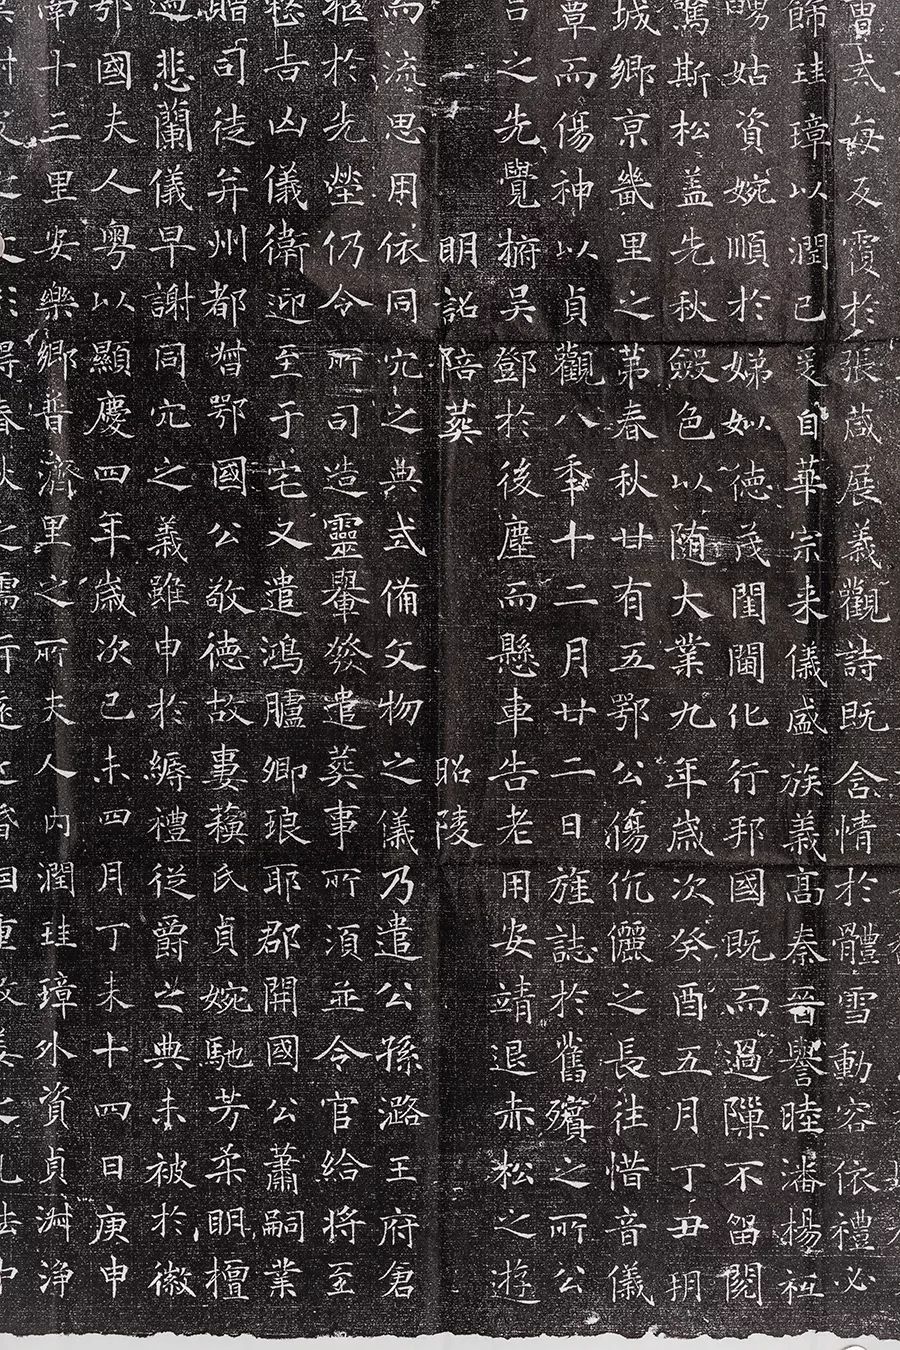 曹弍每反霞於張葴展義觀詩既含情於體雪動容依禮必
師珪璋以潤己爰自華宗来儀盛族義髙秦晉譽睦潘楊祗
姑資婉順於娣姒徳茂閨閫化行邦國既而過隟不留閱
驚斯松盖先秋斂色以随大業九年歳次癸酉五月丁丑
城郷京畿里之第春秋廿有五鄂公傷伉儷之長往惜音儀
覃而傷神以貞觀八年十二月廿二日旌誌於舊殯之所公
之先覺搚吴鄧於後塵而懸車告老用安靖退赤松之遊
明詔陪葬昭陵
而流思用依同穴之典式備文物之儀乃遣公孫潞王府倉
柩於先塋仍令所司造靈轝發遣葬事所須並令官給将至
吉凶儀衛迎至于宅又遣鴻臚卿琅耶郡開國公蕭嗣業
司徒并州都督鄂國公敬徳故妻蘓氏貞婉馳芳柔明擅
悲蘭儀早謝同穴之義雖申於縟禮從爵之典未被於徽
鄂國夫人粤以顯慶四年歳次己未四月丁未十四日庚申
十三里安樂郷普濟里之所夫人内潤珪璋外資貞淑浄